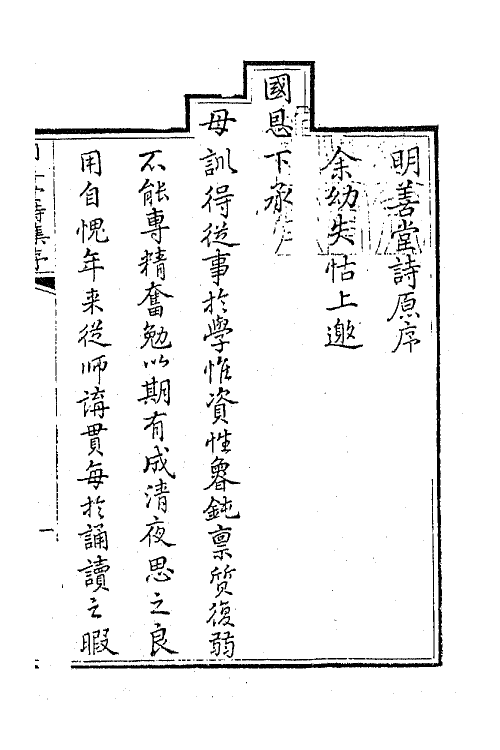 明善堂詩原序
余幼失怙上邀
國恩下承
母訓得從事於學惟資性魯鈍禀質復弱
不能專精奮勉以期有成清夜思之良
用自愧年来從师講貫每於誦讀之暇